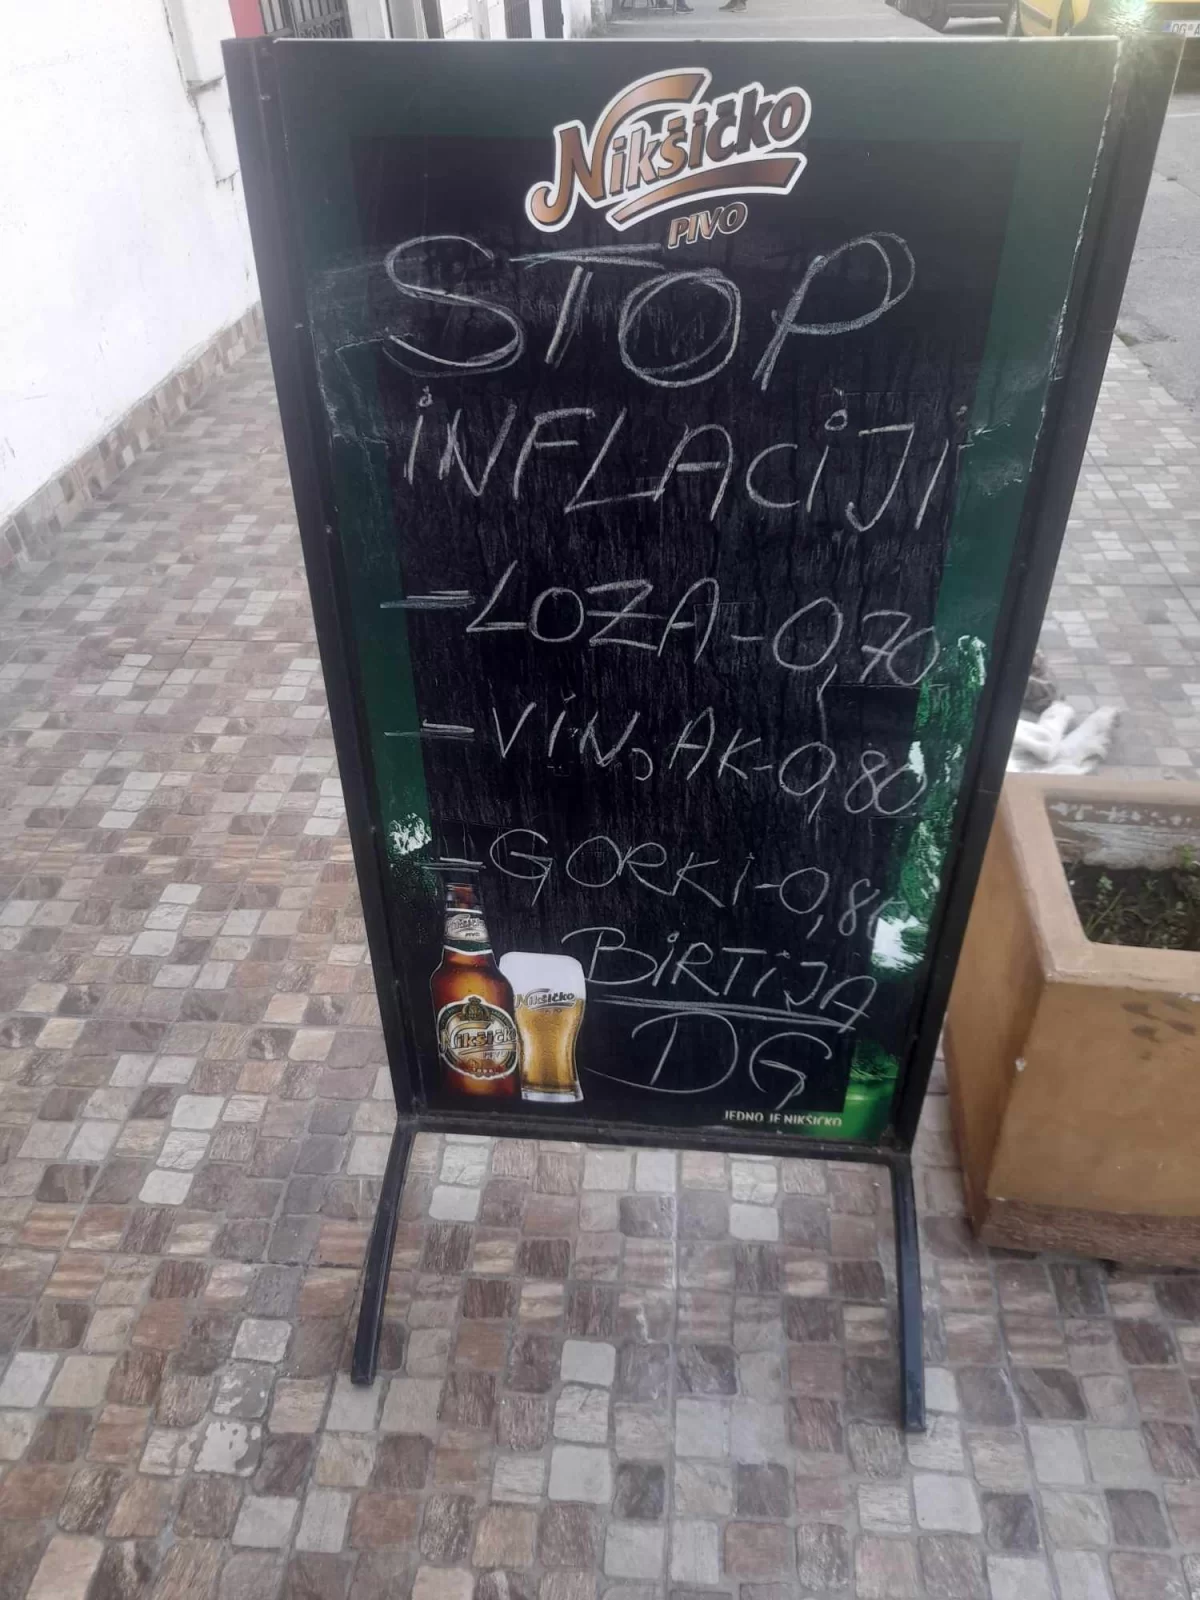 Nikšičko
PIVO
STOP
iNFLACiJi
-LOZA-0,70
-ViN, AK-0,80
-GORKi-0,80
BiRTiJA
DG
Nikšičko
Nikšičko
PIVO
JEDNO JE NIKŠIĆKO